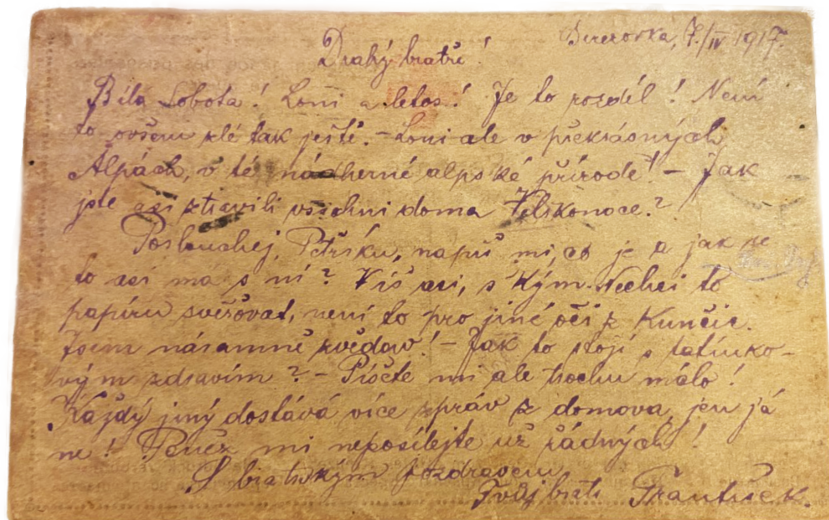 Berezovka, 7./IV 1917.
Drahý bratře!
Bílá Sobota! Loni a letos! Je to rozdíl! Není
to ovšem zlé tak ještě. – Loni ale v překrásných
Alpách, v té nádherné alpské přírodě! – Jak
jste asi ztravili všichni doma Velikonoce?
Poslouchej, Petříku, napiš mi, co je a jak se
to asi má s ní? Víš asi, s kým. Nechci to
papíru svěřovat, není to pro jiné oči z Kunčic.
Jsem náramně zvědav! – Jak to stojí s tatínko-
vým zdravím? – Píšete mi ale trochu málo!
Každý jiný dostává více zpráv z domova, jen já
ne! Peněz mi neposílejte už žádných!
S bratrským pozdravem
Tvůj bratr František.